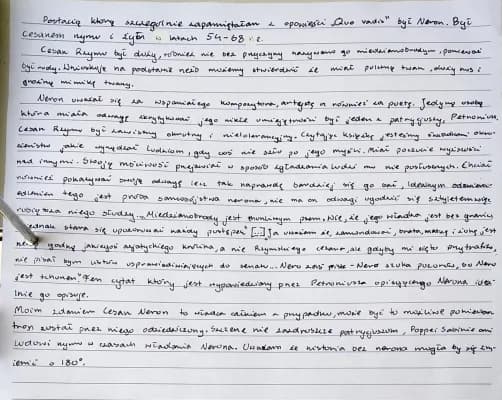 Postacią którą szczególnie zapamiętałam z opowieści „Quo vadis" był Neron. Był
Cesarzem rymu i żył w latach 54-68 r.
Cesarz Rzymu był duży, również nie bez przyczyny nazywano go miedziano brodym, ponieważ
był rudy. Wnioskuję na podstawie możemy stwierdzić że miał pulchną twarz, duży nos i
groźną mimikę twarzy.
Neron uważał się za wspaniałego kompozytora, artystę a również za poetę. Jedyną osobą
która miała odwagę skrytykować jego nikłe umiejętności był jeden z patrycjuszy, Petroniusz.
Cesarz Rzymu był zawistny okrutny i nietolerancyjny. Czytając książkę jesteśmy świadkami okru-
cieństw jakie wyrządzał ludziom, gdy coś nie szło po jego myśli. Miał poczucie wyższości
nad innymi. Swoją mściwość przejawiał w sposób zgładzania ludzi mu nie posłusznych. Chciał
również pokazywać swoją odwagę lecz tak naprawdę bardziej się go bał, idealnym
tego jest próba samobójstwa nerona, nie ma on odwagi ugodzić się sztyletem więc
robi za niego sługa. „Miedzianobrody jest tchórzliwym psem, Wie, że jego władza jest bez granic
jednak stara się upozorować każdy postępek" [...] Ja uważam że, zamordować, brata, matkę i żonę jest
rzeczą godną jakiegoś azjatyckiego królika, a nie Rzymskiego cesarza, ale gdyby mi się to przytrafiło,
nie pisał bym listów usprawiedliwiających do senatu... Nero zaś pisze - Nero szuka pozorów, bo Nero
jest tchórzem" Ten cytat który jest wypowiedziany przez Petroniusza opisującego Nerona ideal-
nie go opisuje.
Moim zdaniem Cesarz Neron to władca całkiem z przypadku, może być to możliwe ponieważ
tron został przez niego odziedziczony. Szczerze nie zazdroszczę patrycjuszom, Poppei Sabinie ani
ludowi rymu w czasach władania Nerona. Uważam że historia bez nerona mogła by się zm-
ienić o 180°.